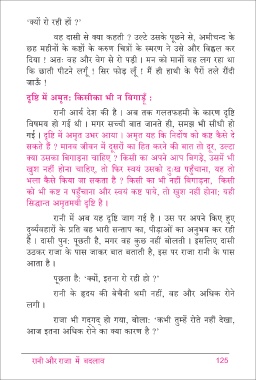 'क्यों रो रही हो ?'
वह दासी से क्या कहती ? उल्टे उसके पूछने से, अमीचन्द के
छह महीनों के कष्टों के करुण चित्रों के स्मरण ने उसे और विह्वल कर
दिया ! अतः वह और वेग से रो पड़ी । मन को मानों यह लग रहा था
कि छाती पीटने लगूँ ! सिर फोड़ लूँ ! मैं ही हाथी के पैरों तले रौंदी
जाऊँ !
दृष्टि में अमृत: किसीका भी न बिगाड़ूँ :
रानी आर्य देश की है । अब तक गलतफहमी के कारण दृष्टि
विषमय हो गई थी । मगर सच्ची बात जानते ही, समझ भी सीधी हो
गई । दृष्टि में अमृत उभर आया । अमृत यह कि निर्दोष को कष्ट कैसे दे
सकते हैं ? मानव जीवन में दूसरों का हित करने की बात तो दूर, उल्टा
क्या उसका बिगाड़ना चाहिए ? किसी का अपने आप बिगड़े, उसमें भी
खुश नहीं होना चाहिए, तो फिर स्वयं उसको दुःख पहुँचाना, यह तो
भला कैसे किया जा सकता है ? किसी का भी नहीं बिगाड़ना, किसी
को भी कष्ट न पहुँचाना और स्वयं कष्ट पाये, तो खुश नहीं होना; यही
सिद्धान्त अमृतमयी दृष्टि है ।
रानी में अब यह दृष्टि जाग गई है । उस पर अपने किए हुए
दुर्व्यवहारों के प्रति वह भारी सन्ताप का, पीड़ाओं का अनुभव कर रही
है । दासी पुनः पूछती है, मगर वह कुछ नहीं बोलती । इसलिए दासी
उठकर राजा के पास जाकर बात बताती है, इस पर राजा रानी के पास
आता है ।
पूछता है: 'क्यों, इतना रो रही हो ?'
रानी के हृदय की बेचैनी थमी नहीं, वह और अधिक रोने
लगी ।
राजा भी गद्‌गद् हो गया, बोला: 'कभी तुम्हें रोते नहीं देखा,
आज इतना अधिक रोने का क्या कारण है ?'
रानी और राजा में बदलाव 125